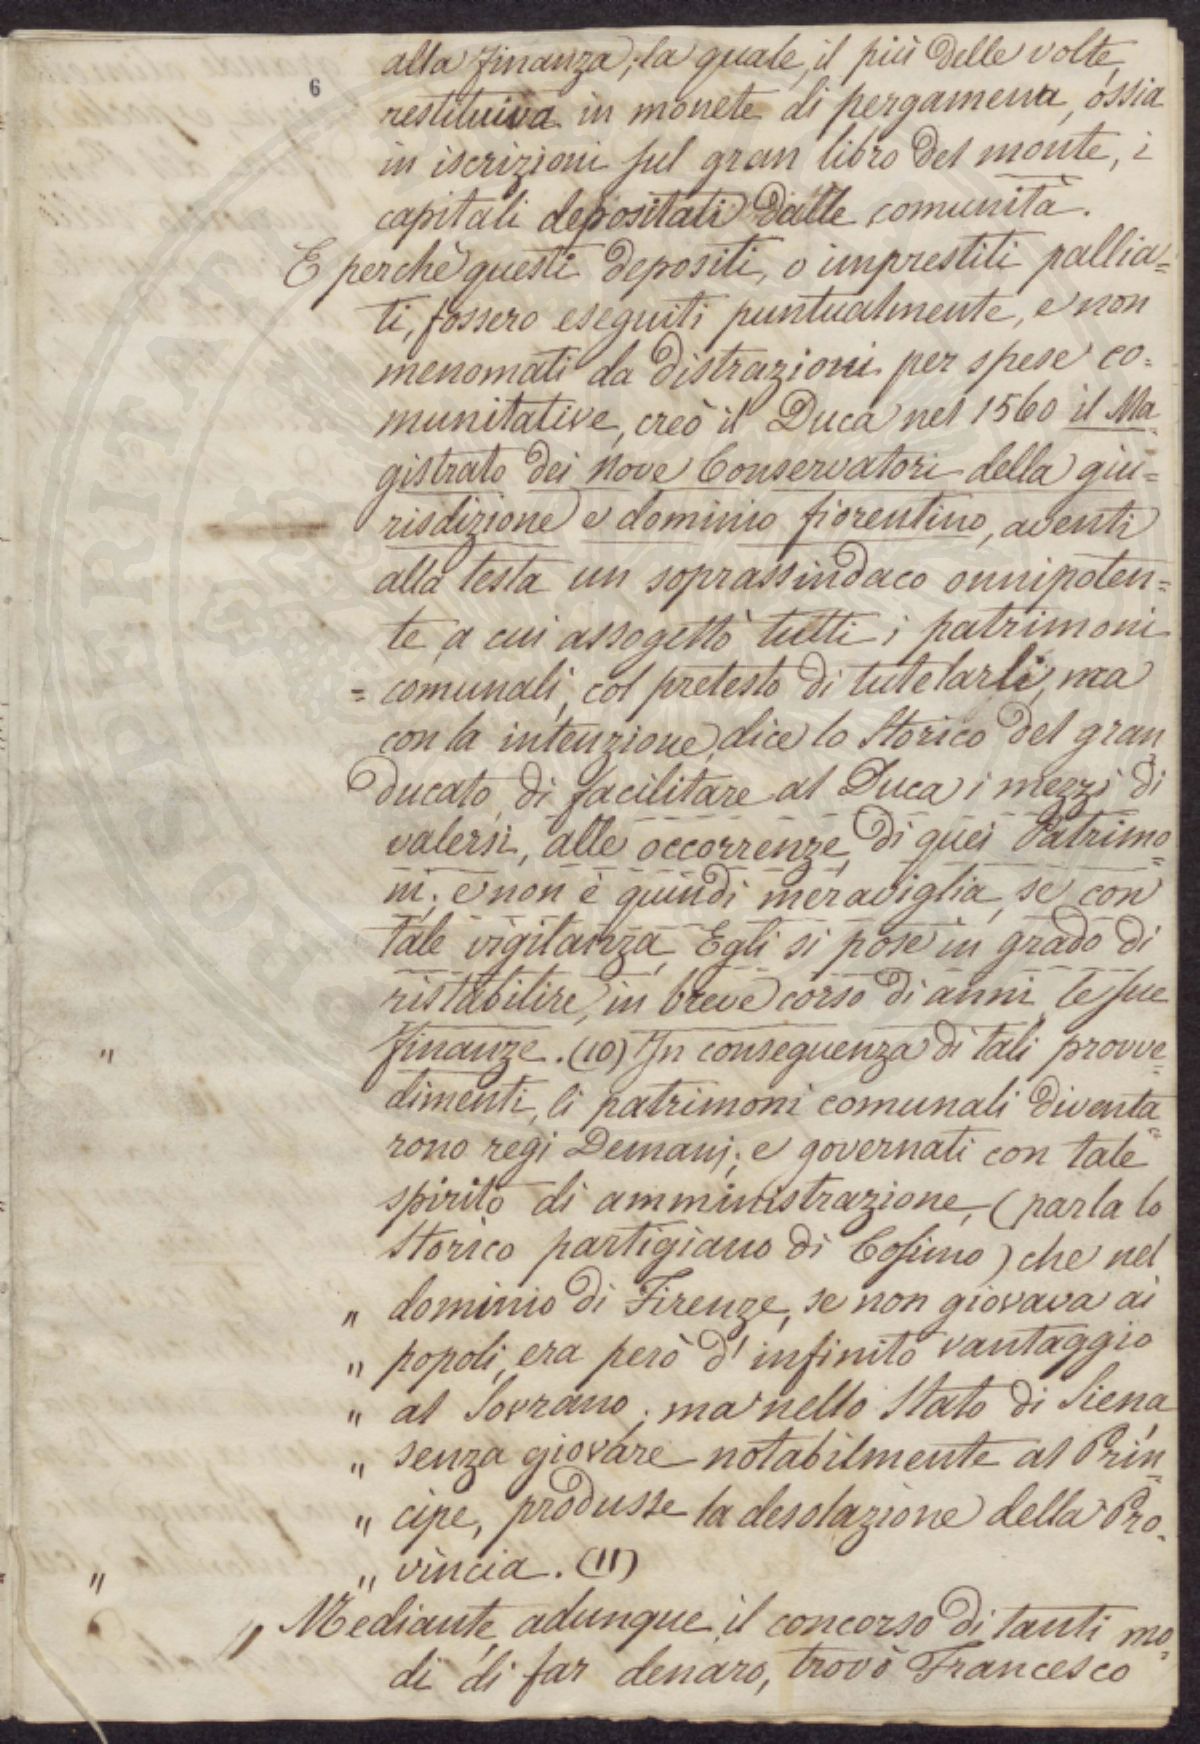 6
alla finanza; la quale, il più delle volte,
restituiva in monete di pergamena, ossia
in iscrizioni sul gran libro del monte, i
capitali depositati dalle comunità.
E perchè questi depositi, o imprestiti pallia=
ti, fossero eseguiti puntualmente, e non
menomati da distrazioni per spese co=
munitative, creò il Duca nel 1560 il Ma
gistrato dei Nove Conservatori della giu=
risdizione e dominio fiorentino, aventi
alla testa un soprassindaco onnipoten=
te, a cui assogettò tutti i patrimoni
= comunali, col pretesto di tutelarli, ma
con la intenzione, dice lo Storico del gran
ducato, di facilitare al Duca i mezzi di
valersi, alle occorrenze, di quei Patrimo=
ni; e non è quindi meraviglia, se con
tale vigilanza, Egli si pose in grado di
ristabilire, in breve corso di anni, le sue
" finanze. (10) In conseguenza di tali provve=
dimenti, li patrimoni comunali diventa=
rono regi Demanj; e governati con tale
spirito di amministrazione, (parla lo
Storico partigiano di Cosimo) che nel
" dominio di Firenze, se non giovava ai
" popoli, era però d'infinito vantaggio
" al Sovrano; ma nello Stato di Siena
" senza giovare notabilmente al Prin=
" cipe, produsse la desolazione della Pro=
" " vincia. (11)
" Mediante, adunque, il concorso di tanti mo=
di di far denaro, trovò Francesco
PROSPERITATI